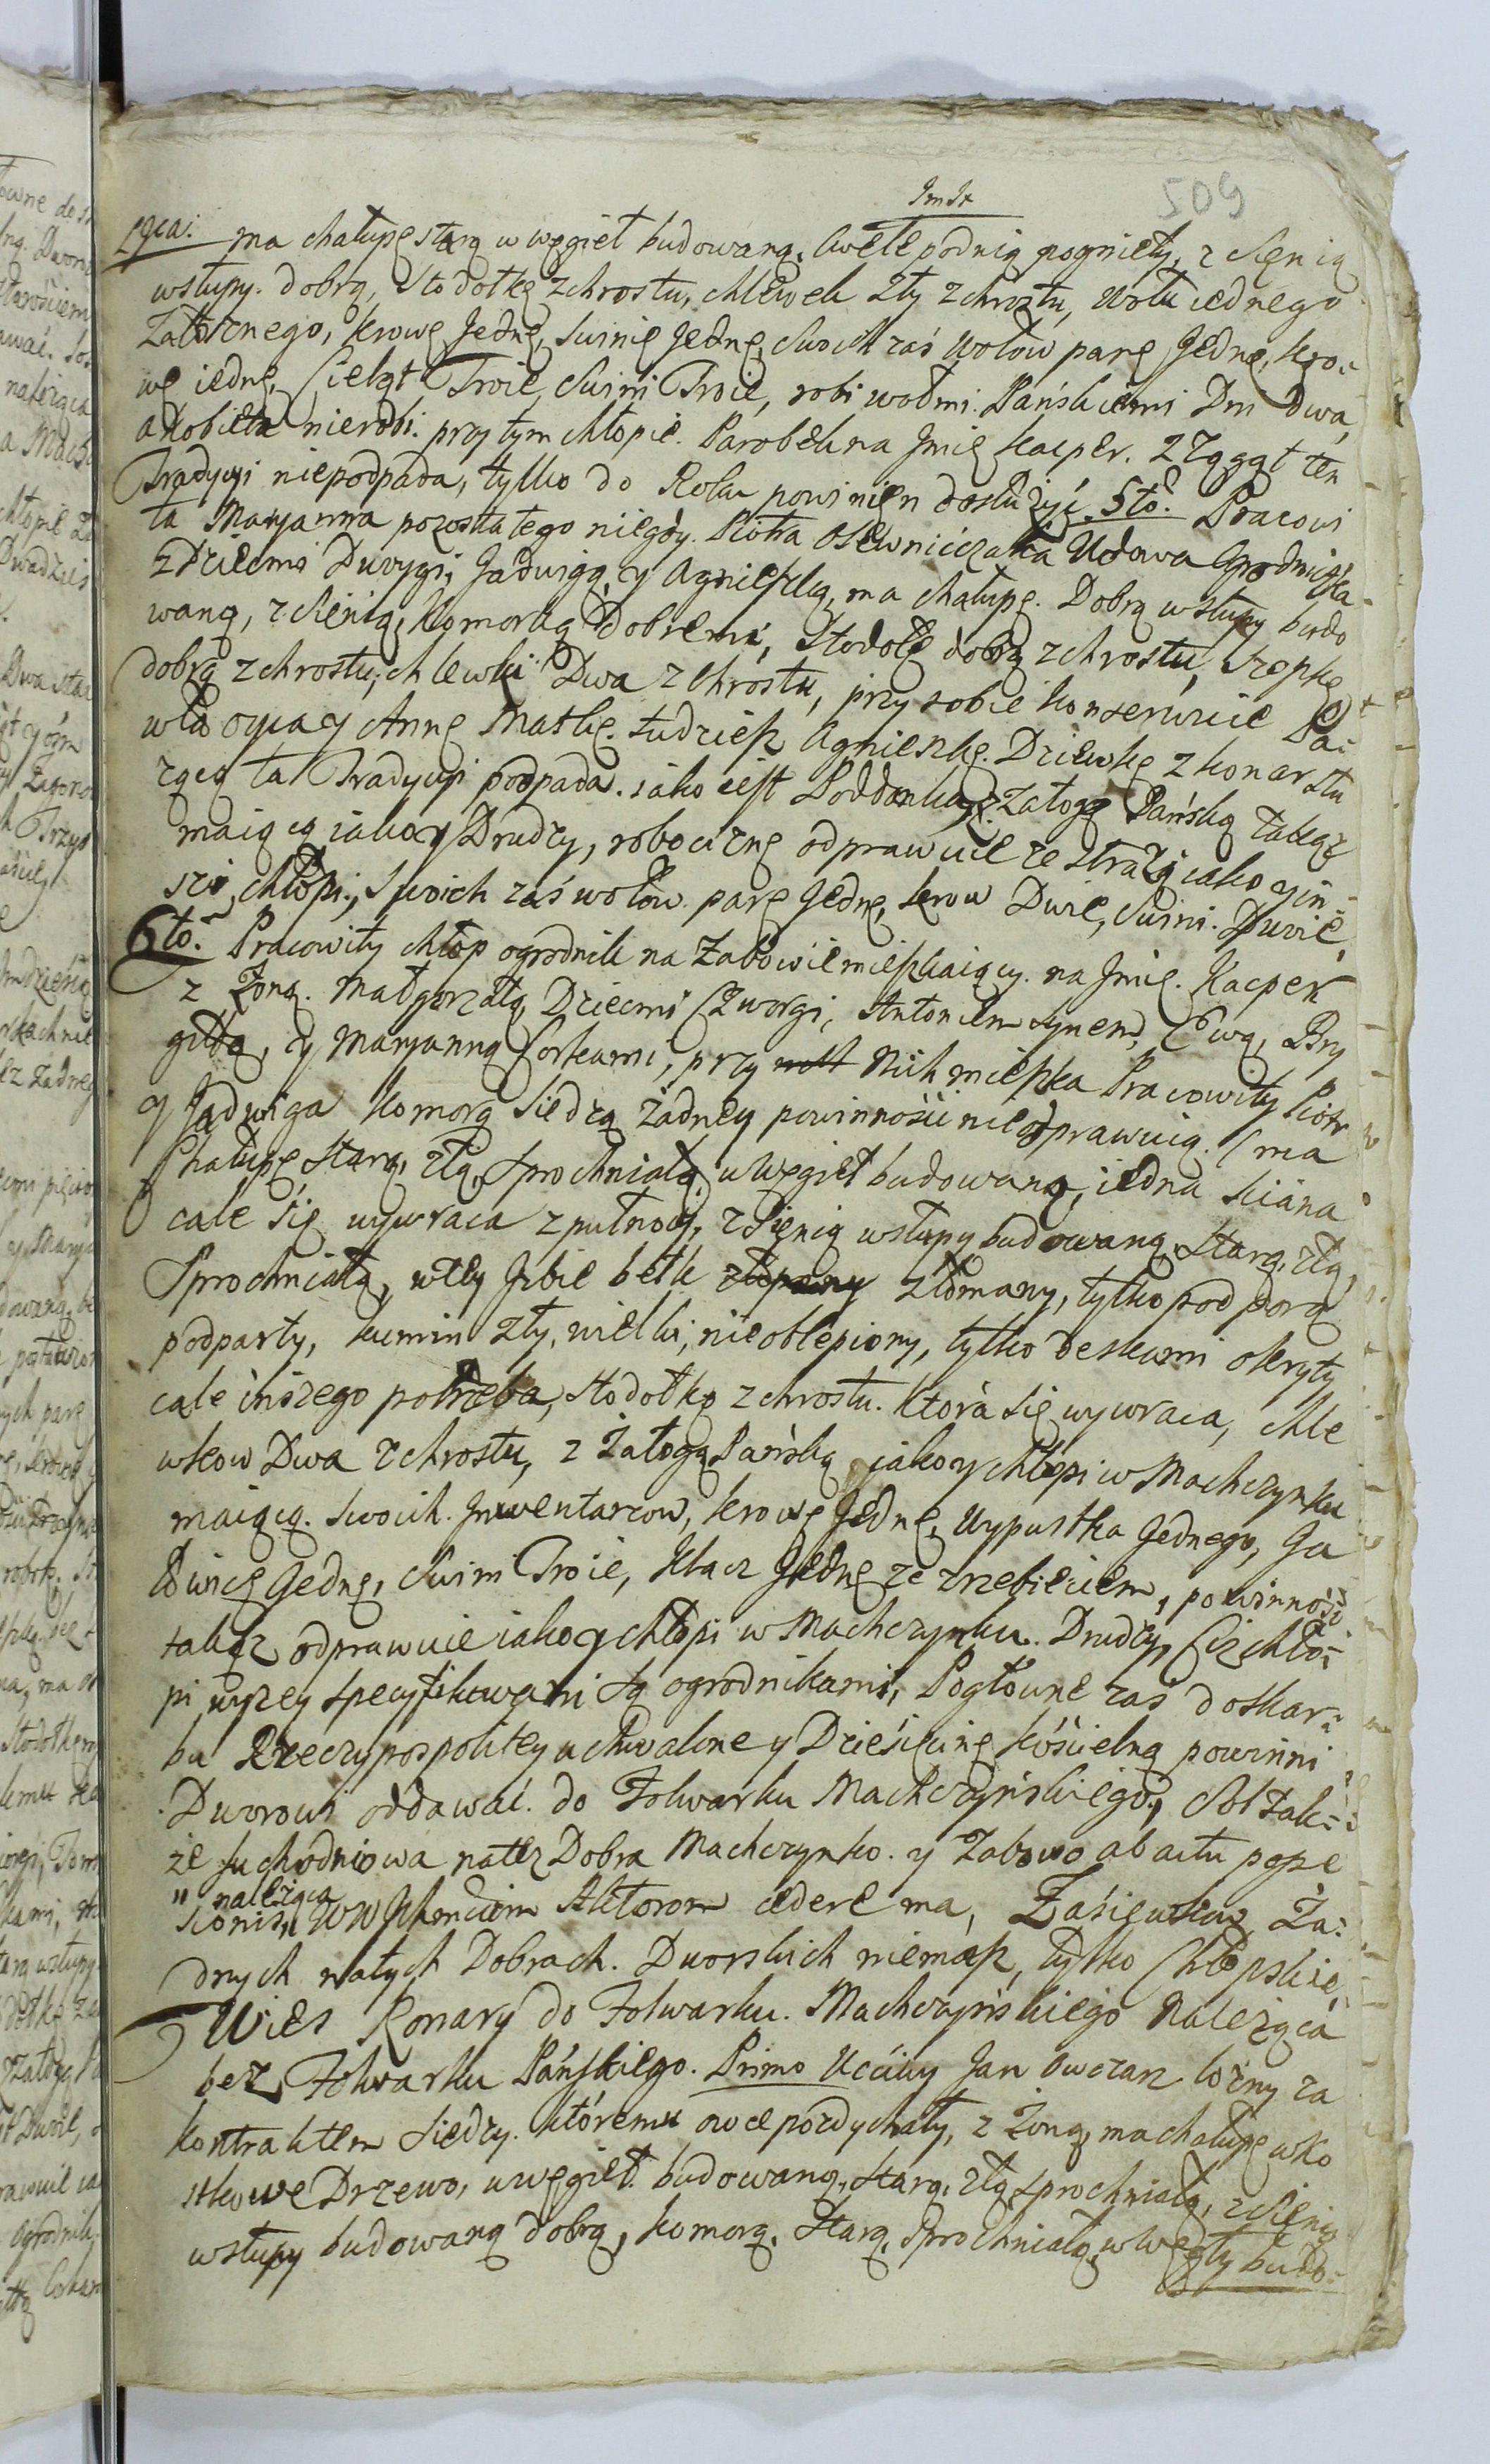 509
ząca: ma chałupę starą w węgieł budowaną, Cwele podnią pogniely, z Sięnią
wstupy. dobrą, Stodołkę z chrostu, chlewek zły z chrostu, Wołu iednego
Założnego, krowę Jednę, Swinię Jednę, Swoich zaś Wołow parę Jednę, kro-
wę iednę, Cieląt Troie, Swini Troie, robi wołmi Pańskiemi Dni dwa,
a kobieta nierobi. przy tym chłopie Parobek na Jmię Kacper. z Zgągt ten
Tradycyi niepodpada, tylko do Roku powinien dosłużyć. 5to. Pracowi
ta Maryanna pozostałego niegdy Piotra Osewniczaka Wdowa Ogrodniczka
z Dziećmi Dwoygi, Jadwigą, y Agnieszką, ma chałupę. Dobrą wstupy budo
waną, z Sienią, komorką dobremi, Stodołę dobrą z chrostu, Szopkę
dobrą z chrostu, chlewki Dwa z Chrostu, przy sobie konserwuie Pa-
wła oyca y Annę Matkę. tudziesz Agnieszkę. Dziewkę z konar stu
żącą ta Tradycyi podpada. iako iest Poddanka, z Załogę Pańską takąż
maiącą iako y Drudzy, robociznę odprawuie ze strażą iako y in-
szi chłopi, Swoich zaś wołow parę Jednę, krow Dwie, Swini. Dwie,
6to. Pracowity chłop ogrodnik na Żabowie mieszkaiący. na Jmię. Kacper
z Żoną. Małgorzatą, Dziećmi Czworgi, Antonim synem, Ewą, Bry
gittą, y Maryanną Corkami, przy Nich mieszka Pracowity Piotr
y Jadwiga komorą siedzą żadney powinności nieodprawuią. (ma
Chałupę starą, złą, sprochniałą, w Węgieł budowaną, iedna sciana
cale się wywraca z pułnocy, z Sienią wstupy budowaną, Starą, złą,
Sprochniałą, w tey Jzbie belk złomany, tylko podporą
podparty, kumin zły, wielki, nieoblepiony, tylko deskami okryty
cale inszego potrzeba, Stodołkę z chrostu. ktora się wywraca, chle
wkow Dwa z chrostu, z Załogą Pańską iako y chłopi w Machczynku
maiącą. Swoich. Jnwentarzow, krowę Jednę, Wypustka Jednego, Ja
łowicę Jednę, Swini Troie, klacz Jednę ze zrzebięciem, powinność
takąż odprawuie iako y chłopi w Machczynku. Drudzy, Ci chło-
pi wyzey specyfikowani są ogrodnikami, Pogłowne zaś do skar-
bu Rzeczypospolitey uchwalone y Dziesięcinę kościelną powinni
Dworowi oddawać. do Folwarku Machczyńskiego, Sol tak-
że suchodniowa na też Dobra Machczynko. y Żabowo ab actu pope
" należąca
sionis, WW Jchmciom Aktorom cedere ma, Zasiewkow Ża-
dnych natych Dobrach. Dworskich niemasz, tylko Chłopskie,
Wieś Konary do Folwarku. Machczyńskiego Należąca
bez Folwarku Pańskiego. Primo Uććiwy Jan Owczarz loźny za
kontraktem siedzy. któremu owce pozdychały, z Żoną, ma chałupę w ko
stkowe Drzewo, w węgieł budowaną, starą, złą sprochniałą, z Sienią
wstupy budowaną dobrą, komorą. Starą, sprochniałą, w Węgły budo-